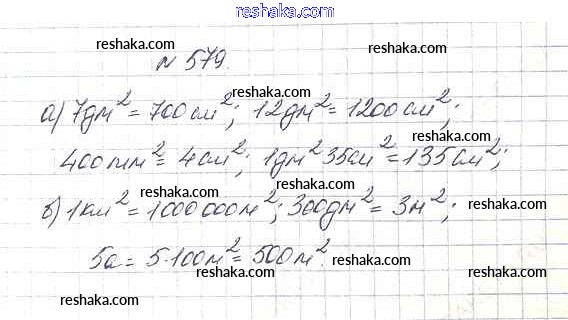 reshaka.com
reshaka.com
№ 579.
reshaka.com
а) 7дм² = 700см²; 12дм² = 1200см²;
reshaka.com reshaka.com
400мм² = 4см²; 1дм² 35см² = 135см²;
reshaka.com reshaka.com
б) 1км² = 1000 000м²; 300дм² = 3м²;
reshaka.com
5а = 5·100м² = 500м².
reshaka.com reshaka.com
reshaka.com